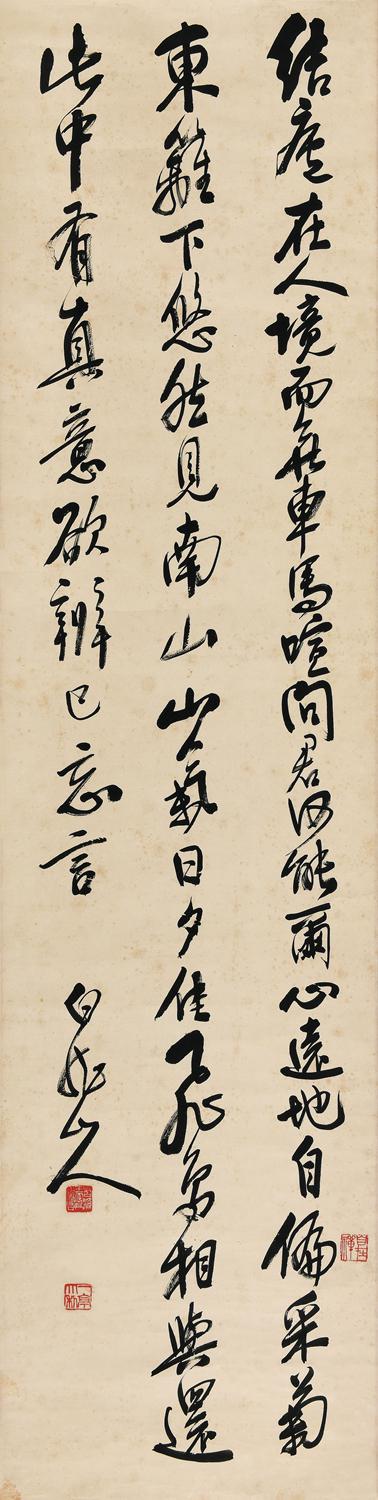 結廬在人境而無車馬喧問君何能爾心遠地自偏采菊
東籬下悠然見南山山氣日夕佳飛鳥相與還
此中有真意欲辨已忘言
白龍山人